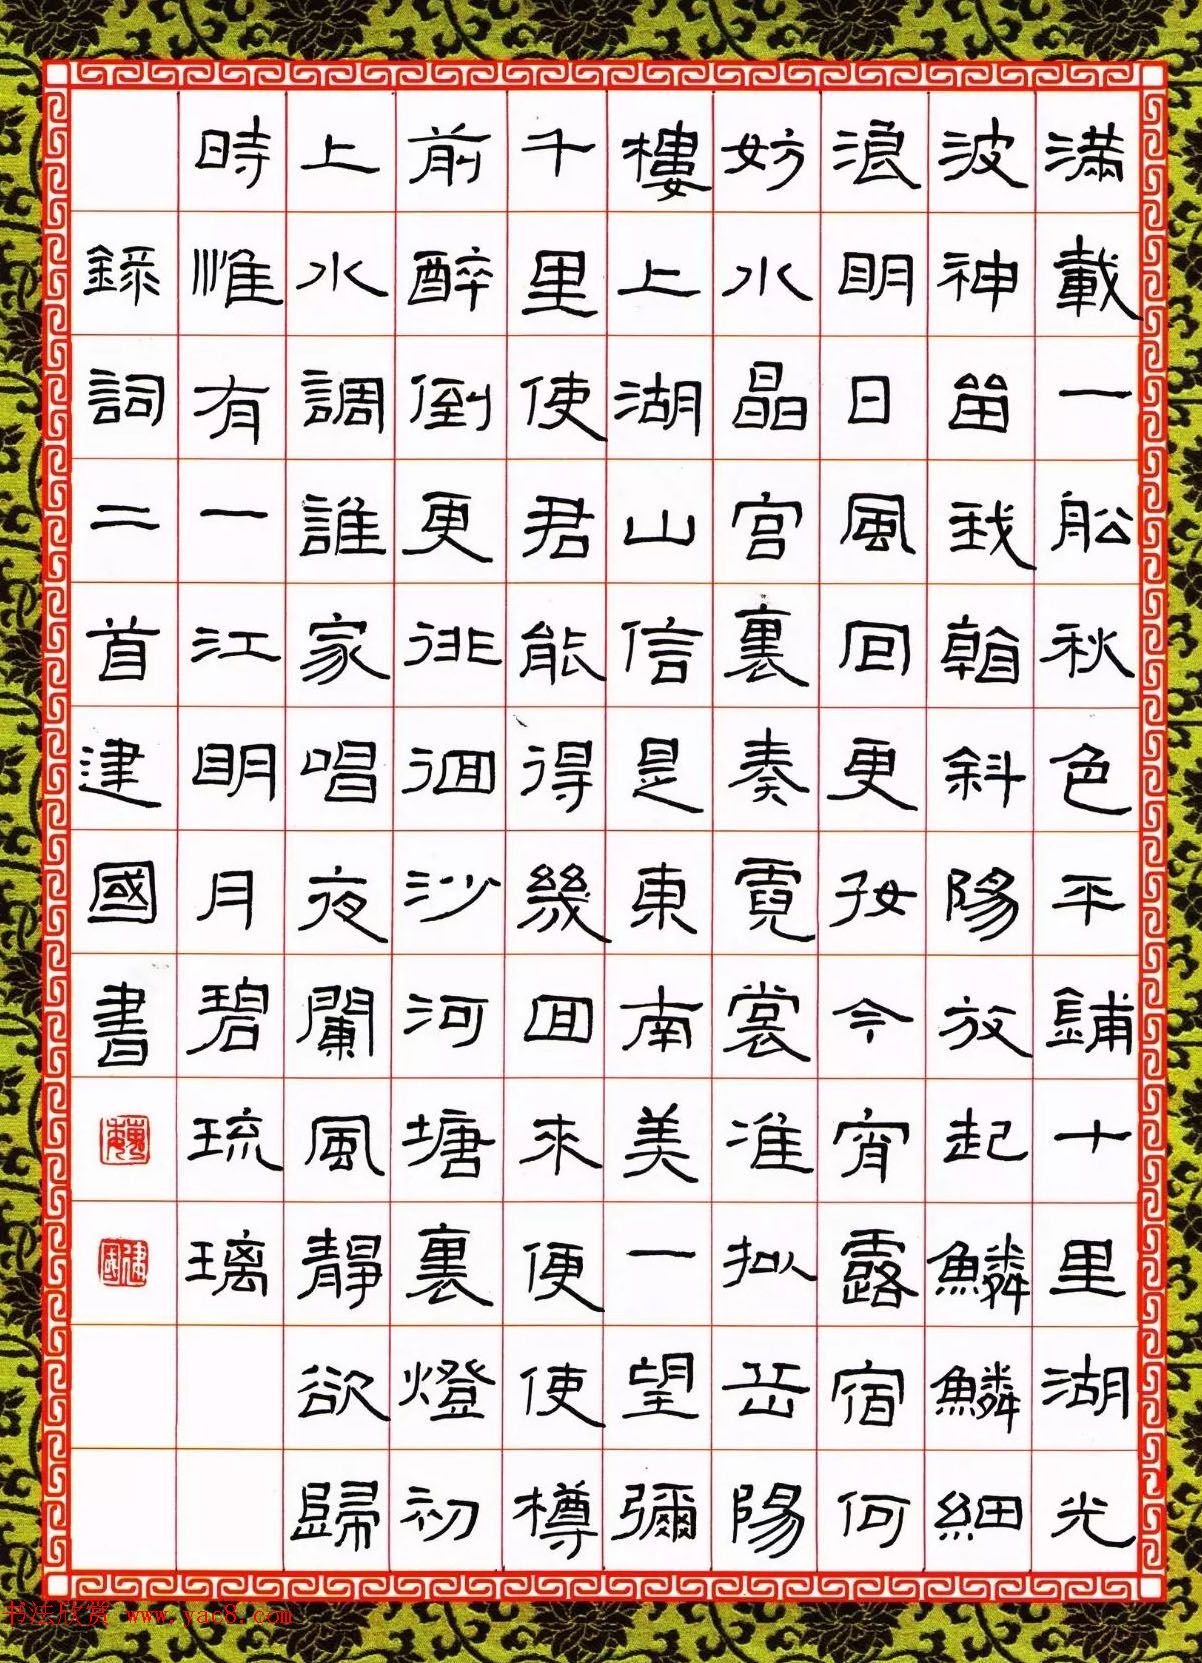 滿載一舩秋色平鋪十里湖光
波神留我看斜陽放起鱗鱗細
浪眀日風回更好今宵露宿何
妨水晶宮裏奏霓裳准拟岳陽
樓上湖山信是東南美一望彌
千里使君能得幾回來便使樽
前醉倒更徘徊沙河塘裏燈初
上水調誰家唱夜闌風靜欲歸
時惟有一江眀月碧琉璃
錄詞二首建國書
建國
书法欣赏 www.yac8.com